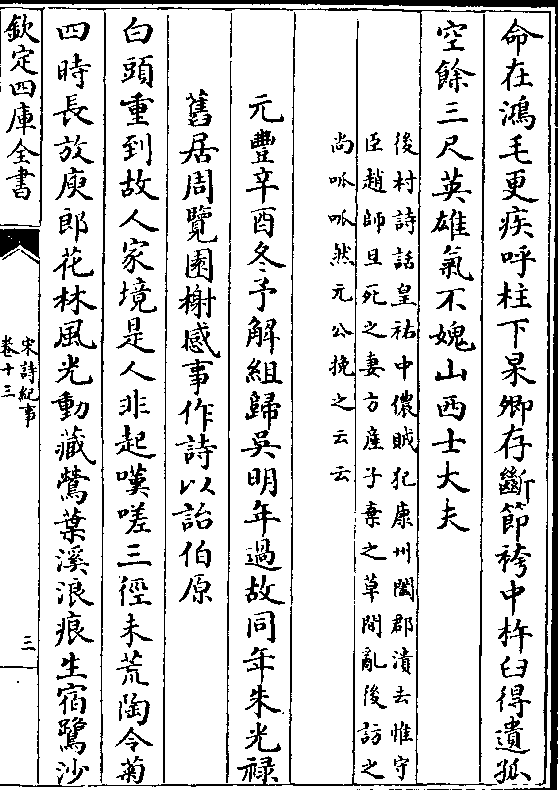 命在鴻毛更疾呼柱下杲卿存斷節袴中杵臼得遺孤
空餘三尺英雄氣不媿山西士大夫
後村詩話皇祐中儂賊犯康州闔郡潰去惟守
臣趙師旦死之妻方產子棄之草間亂後訪之
尚呱呱然元公挽之云云
元豐辛酉冬予解組歸吳明年過故同年朱光祿
舊居周覽園榭感事作詩以詒伯原
白頭重到故人家境是人非起嘆嗟三徑未荒陶令菊
四時長放庾郎花林風光動藏鶯葉溪浪痕生宿鷺沙
欽定四庫全書
宋詩紀事
卷十三
三